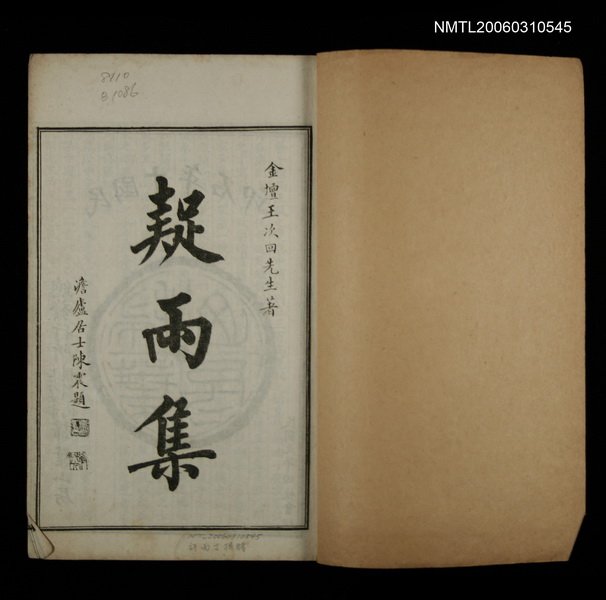 NMTL20060310545
8110
B1086
金壇王次回先生著
疑雨集
澹廬居士陳衮題
NMTL20060310545